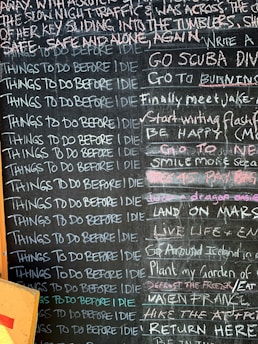 AWAY. WITH
THE SLOW NIGHT TRAFFIC & WAS ACROSS. THE C
OF HER KEY SLIDING INTO THE TUMBLERS. SH
SAFE. SAFE AND ALONE, AGAIN. WRITE A
THINGS TO DO BEFORE I DIE GO SCUBA DIV
THINGS TO DO BEFORE I DIE GO TO BURNING
THINGS TO DO BEFORE I DIE Finally meet Jake
THINGS TO DO BEFORE I DIE Start writing flash
THINGS TO DO BEFORE I DIE BE HAPPY (MO
THINGS TO DO BEFORE I DIE GO TO NE
THINGS TO DO BEFORE I DIE SMILE MORE
THINGS TO DO BEFORE I DIE
THINGS TO DO BEFORE I DIE dragon
THINGS TO DO BEFORE I DIE LAND ON MARS
THINGS TO DO BEFORE I DIE LIVE LIFE + EN
THINGS TO DO BEFORE I DIE Go Around Iceland in a
THINGS TO DO BEFORE I DIE Plant my Garden of
THINGS TO DO BEFORE I DIE DEFEAT THE /EAT
THINGS TO DO BEFORE I DIE FRANCE
THINGS TO DO BEFORE I DIE HIKE THE
THINGS TO DO BEFORE I DIE RETURN HERE
BE IN